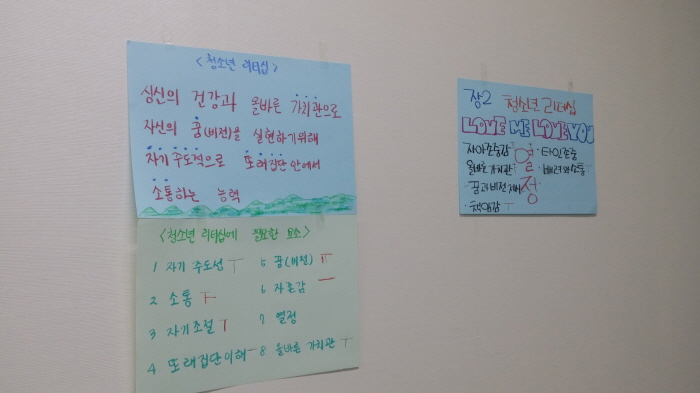 <청소년 리더십>
심신의 건강과 올바른 가치관으로
자신의 꿈(비전)을 실현하기위해
자기 주도적으로 또래집단 안에서
소통하는 능력
<청소년 리더십에 필요한 요소>
1 자기 주도성
2 소통
3 자기조절
4 또래집단이해
5 꿈(비전)
6 자존감
7 열정
8 올바른 가치관
장2 청소년 리더십
LOVE ME LOVE YOU
자아존중감
올바른 가치관
·꿈과 비전 제시
·책임감
열정
·타인존중
·배려와 소통